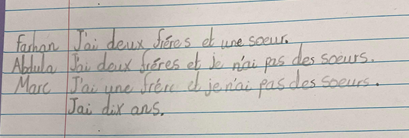 Farhan J'ai deux frères et une soeur.
Abdula J'ai deux frères et Je n'ai pas des soeurs.
Marc J'ai une frère et je n'ai pas des soeurs.
Jai dix ans.